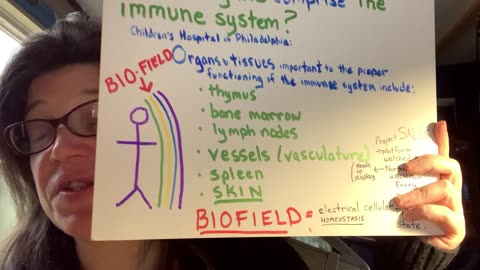 comprise the
immune system?
Children's Hospital of Philadelphia:
Organs & tissues important to the proper
functioning of the immune system include:
BIO-FIELD
• thymus
• bone marrow
• lymph nodes
• vessels (vasculature)
• spleen
• SKIN
Project
platform
watched
heads up display
Every
BIOFIELD = electrical cellular
HOMEOSTASIS
state.